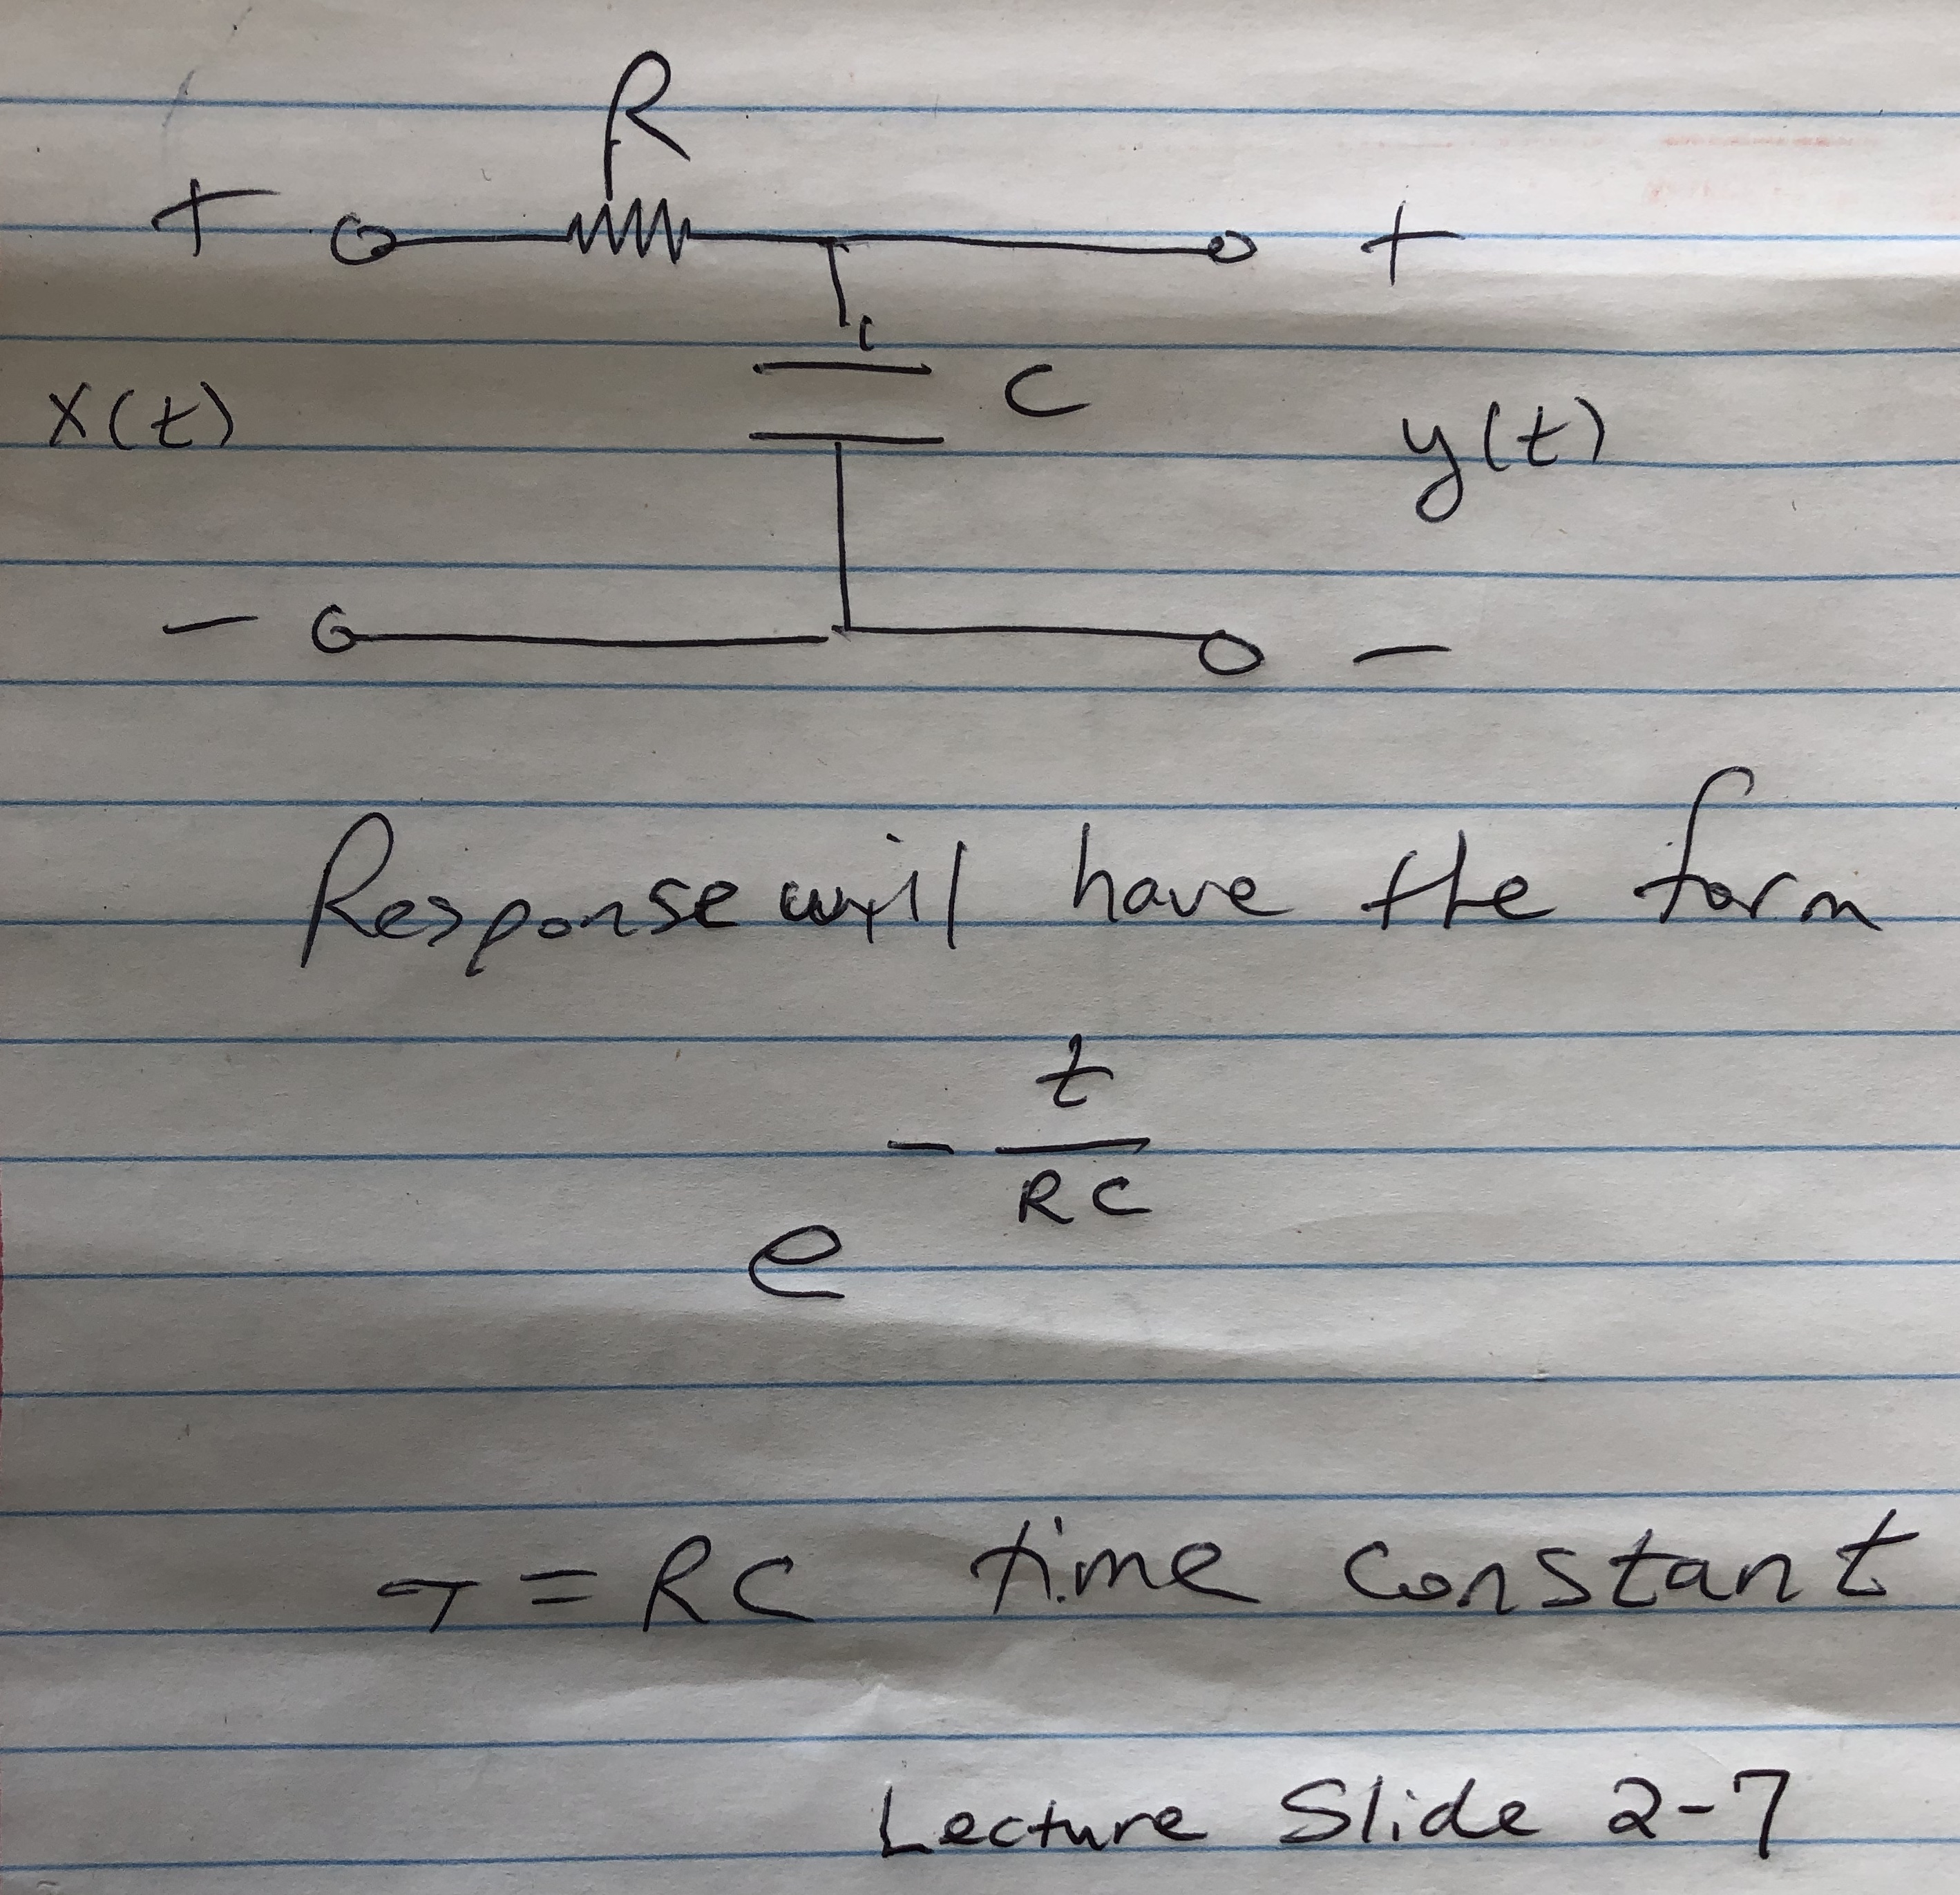 R
+ +
C
x(t) y(t)
- -
Response will have the form
e^{-\frac{t}{RC}}
τ = RC time constant
Lecture Slide 2-7